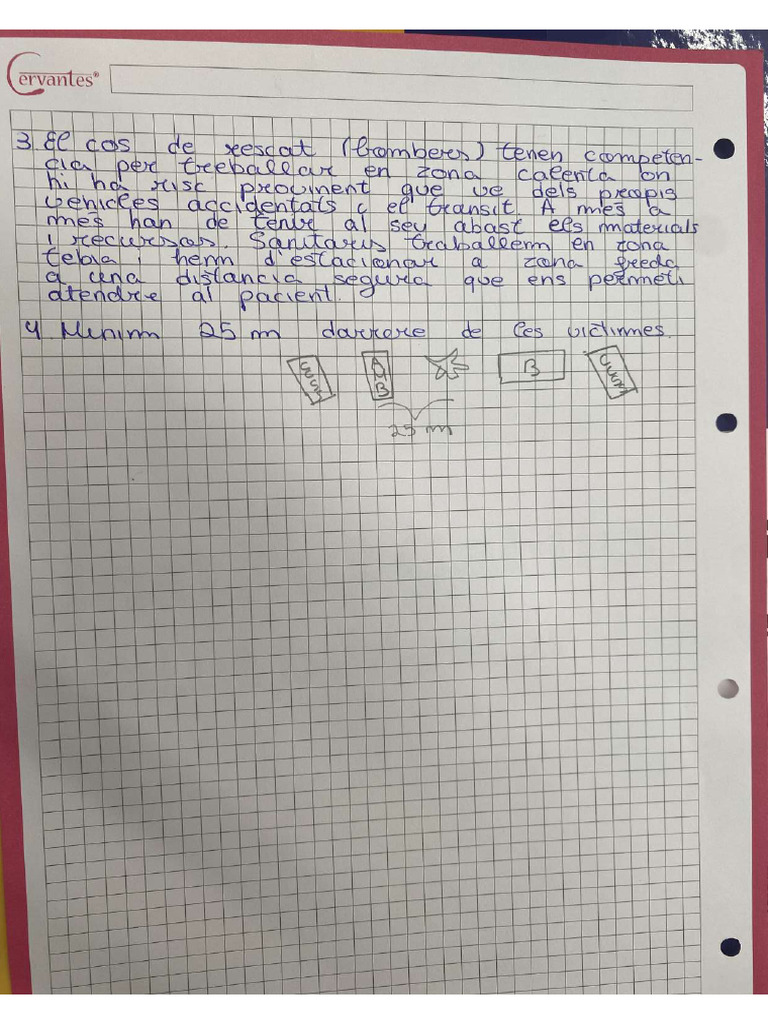 Cervantes®
3 El cos de rescat (bombers) tenen competen-
cia per treballar en zona calenta on
hi ha risc provinent que ve dels propis
vehicles accidentats i el transit A més a
mes han de tenir al seu abast els materials
i recursos. Sanitaris treballem en zona
tebia i hem d'estacionar a zona freda
a una distancia segura que ens permeti
atendre al pacient.
4 Minim 25 m darrere de les victimes.
AMB B
25 m